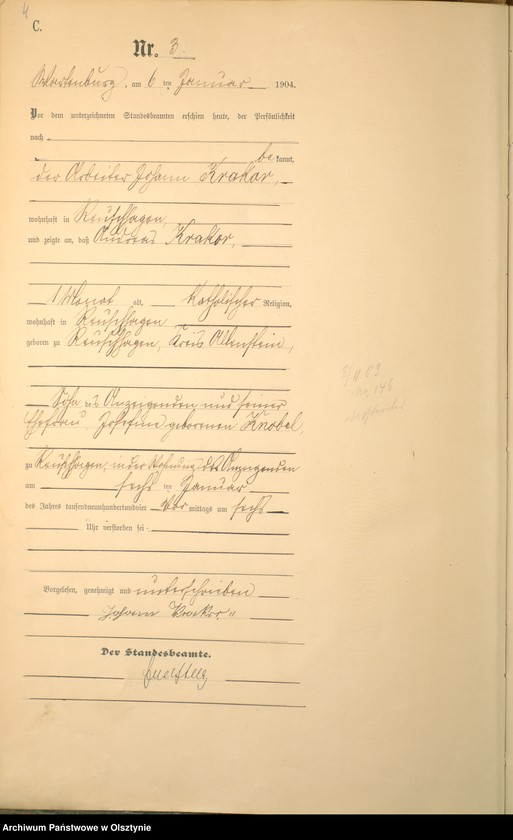 4
C.
Nr. 3.
Wartenburg, am 6 ten Januar 1904.
Vor dem unterzeichneten Standesbeamten erschien heute, der Persönlichkeit
nach
be kannt,
der Arbeiter Johann Krakor,
wohnhaft in Reuschhagen,
und zeigte an, daß Andreas Krakor,
1 Monat alt, katholischer Religion,
wohnhaft in Reuschhagen
geboren zu Reuschhagen, Kreis Allenstein,
Sohn des Anzeigenden und seiner
Ehefrau Josefine geborenen Knobel,
zu Reuschhagen, in der Wohnung des Anzeigenden
am sechs ten Januar
des Jahres tausendneunhundertundvier Vor mittags um sechs
Uhr verstorben sei
Vorgelesen, genehmigt und unterschrieben
Johann Krakor
Der Standesbeamte.
Archiwum Państwowe w Olsztynie